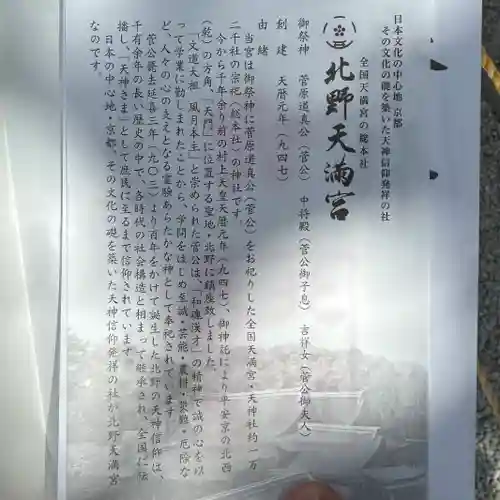 日本文化の中心地 京都
その文化の礎を築いた天神信仰発祥の社
全国天満宮の総本社
北野天満宮
御祭神 菅原道真公（菅公） 中将殿（菅公御子息） 吉祥女（菅公御夫人）
創建 天暦元年（九四七）
由緒
当宮は御祭神に菅原道真公（菅公）をお祀りした全国天満宮・天神社約一万
二千社の宗祀（総本社）の神社です。
今から千年余り前の村上天皇天暦元年（九四七）、御神託により平安京の北西
（乾）の方角、「天門」に位置する聖地・北野に鎮座致しました。
「文道大祖 風月本主」と崇められた菅公は、「和魂漢才」の精神で誠の心を以
って学業に勤しまれたことから、学問をはじめ至誠・芸能・農耕・災難・厄除な
ど、人々の心の支えとなる霊験あらたかな神として奉祀されています。
菅公薨去延喜三年（九〇三）より百年をかけて誕生した北野の天神信仰は、
千有余年の長い歴史の中で、各時代の社会構造と相まって継承され、全国に伝
播し、「天神さま」として庶民に至るまで信仰されています。
日本の中心地・京都、その文化の礎を築いた天神信仰発祥の社が北野天満宮
なのです。